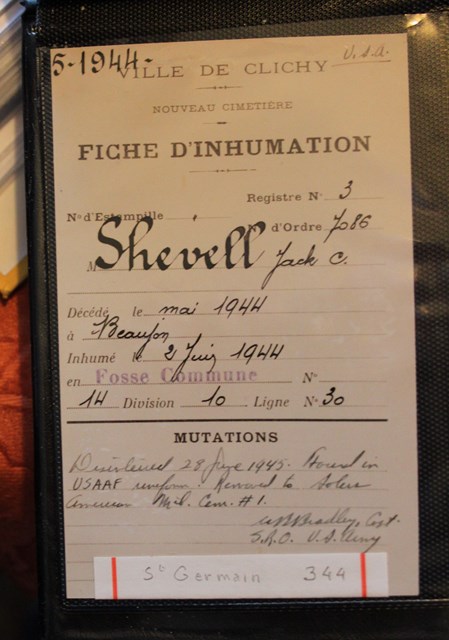 5-1944-
U.S.A.
VILLE DE CLICHY
NOUVEAU CIMETIÈRE
FICHE D'INHUMATION
Registre N° 3
N° d'Estampille
d'Ordre 7086
M Shevell Jack C.
Décédé le mai 1944
à Beaujon
Inhumé le 2 Juin 1944
en Fosse Commune N°
14 Division 10 Ligne N° 30
MUTATIONS
Disinterred 28 June 1945. Found in
USAAF uniform. Removed to Solers
American Mil. Cem. #1.
Bradley, Capt.
U.S. Army
St Germain 344